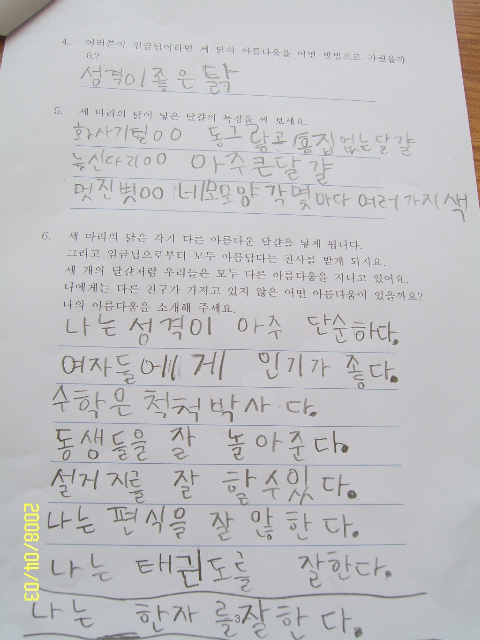 4. 여러분이 임금님이라면 세 닭의 아름다움을 어떤 방법으로 가렸을까
요?
성격이좋은 닭
5. 세 마리의 닭이 낳은 달걀의 특징을 써 보세요.
화사기털00 동그랗곤 흠집없는달걀
늘신다리00 아주큰달걀
멋진볏00 네모모양각몇마다여러가지색
6. 세 마리의 닭은 각기 다른 아름다운 달걀을 낳게 됩니다.
그리고 임금님으로부터 모두 아름답다는 찬사를 받게 되지요.
세 개의 달걀처럼 우리들은 모두 다른 아름다움을 지니고 있어요.
나에게는 다른 친구가 가지고 있지 않은 어떤 아름다움이 있을까요?
나의 아름다움을 소개해 주세요.
나는성격이 아주 단순하다.
여자들에게 인기가 좋다.
수학은척척박사다.
동생들을 잘 놀아준다.
설거지를 잘 할수있다.
나는편식을잘않한다.
나는 태권도를 잘한다.
나는 한자를잘한다.
3
2008/04/03